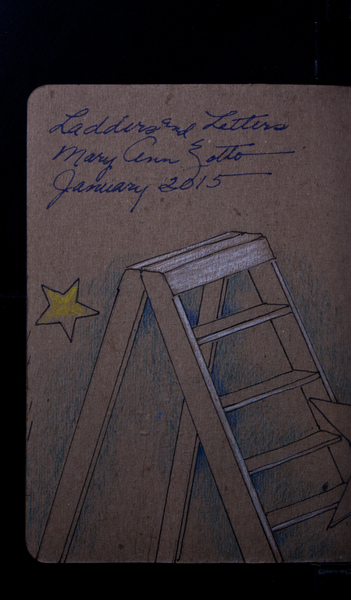 Ladders and Letters
Mary Ann Zotto
January 2015